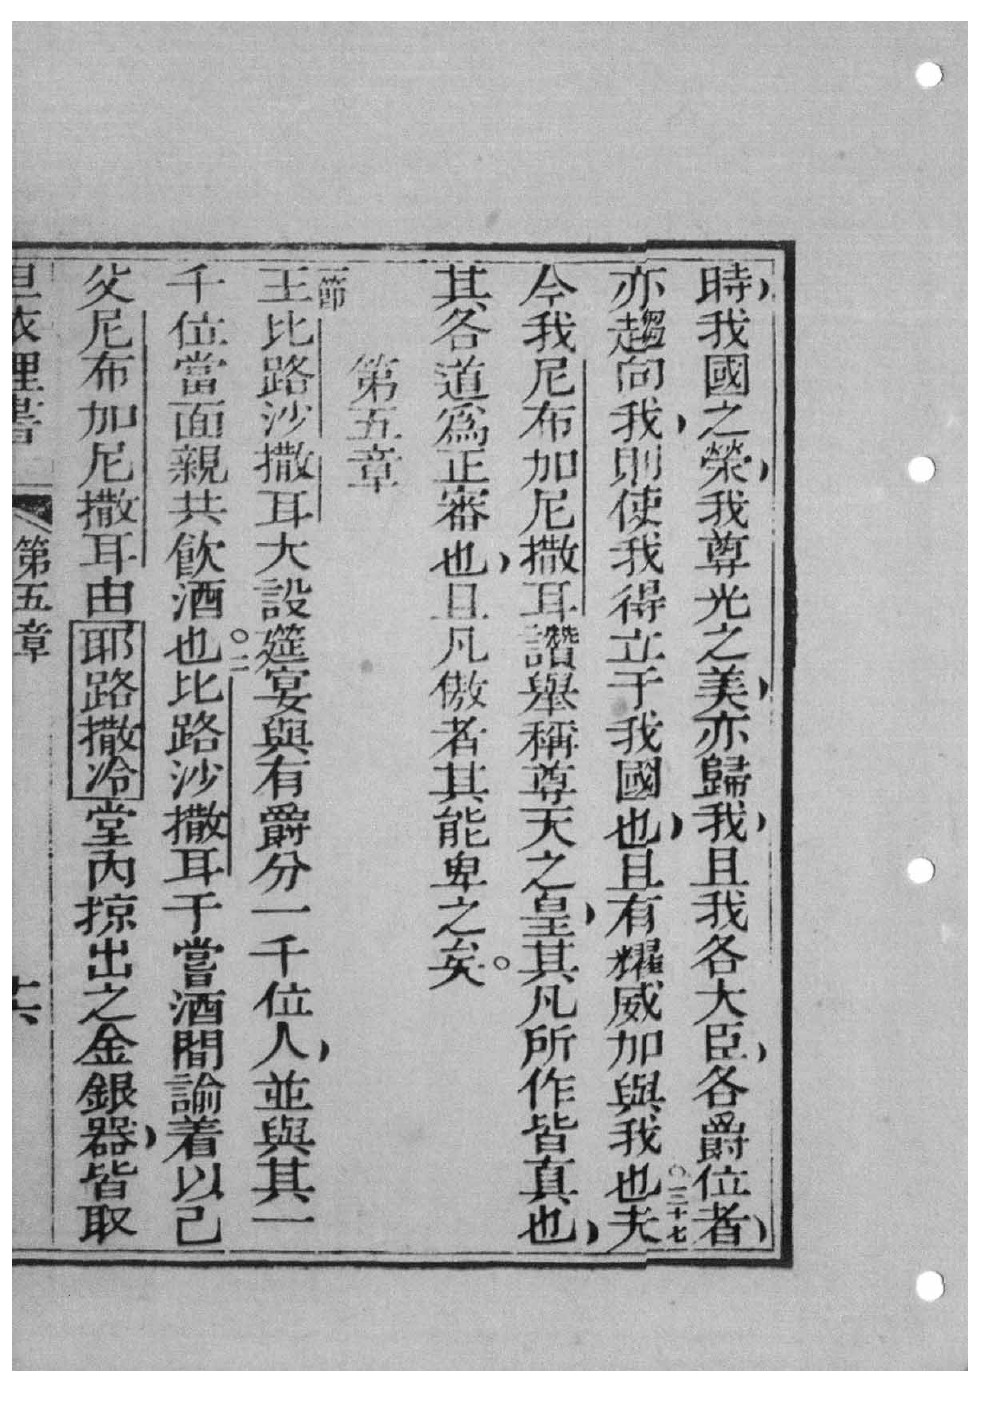 時我國之榮我尊光之美亦歸我且我各大臣各爵位者
亦趨向我則使我得立于我國也且有耀威加與我也○三十七夫
今我尼布加尼撒耳讚舉稱尊天之皇其凡所作皆真也
其各道為正審也且凡傲者其能卑之矣。
第五章
一節王比路沙撒耳大設筵宴與有爵分一千位人並與其一
千位當面親共飲酒也○二比路沙撒耳于嘗酒間諭着以己
父尼布加尼撒耳由耶路撒冷堂內掠出之金銀器皆取
但依理書 第五章